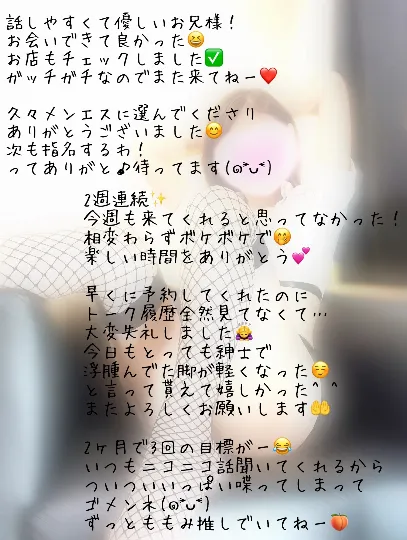 話しやすくて優しいお兄様！
お会いできて良かった😆
お店もチェックしました✅
ガッチガチなのでまた来てねー❤️
久々メンエスに選んでくださり
ありがとうございました😊
次も指名するわ！
ってありがと♪待ってます(๑˃̵ᴗ˂̵)
2週連続✨
今週も来てくれると思ってなかった！
相変わらずボケボケで🤭
楽しい時間をありがとう💕
早くに予約してくれたのに
トーク履歴全然見てなくて…
大変失礼しました🙇
今日もとっても紳士で
浮腫んでた脚が軽くなった☺️
と言って貰えて嬉しかった^ ^
またよろしくお願いします🤲
2ヶ月で3回の目標がー😂
いつもニコニコ話聞いてくれるから
ついついいっぱい喋ってしまって
ゴメンネ(๑˃̵ᴗ˂̵)
ずっともみ推しでいてねー🍑